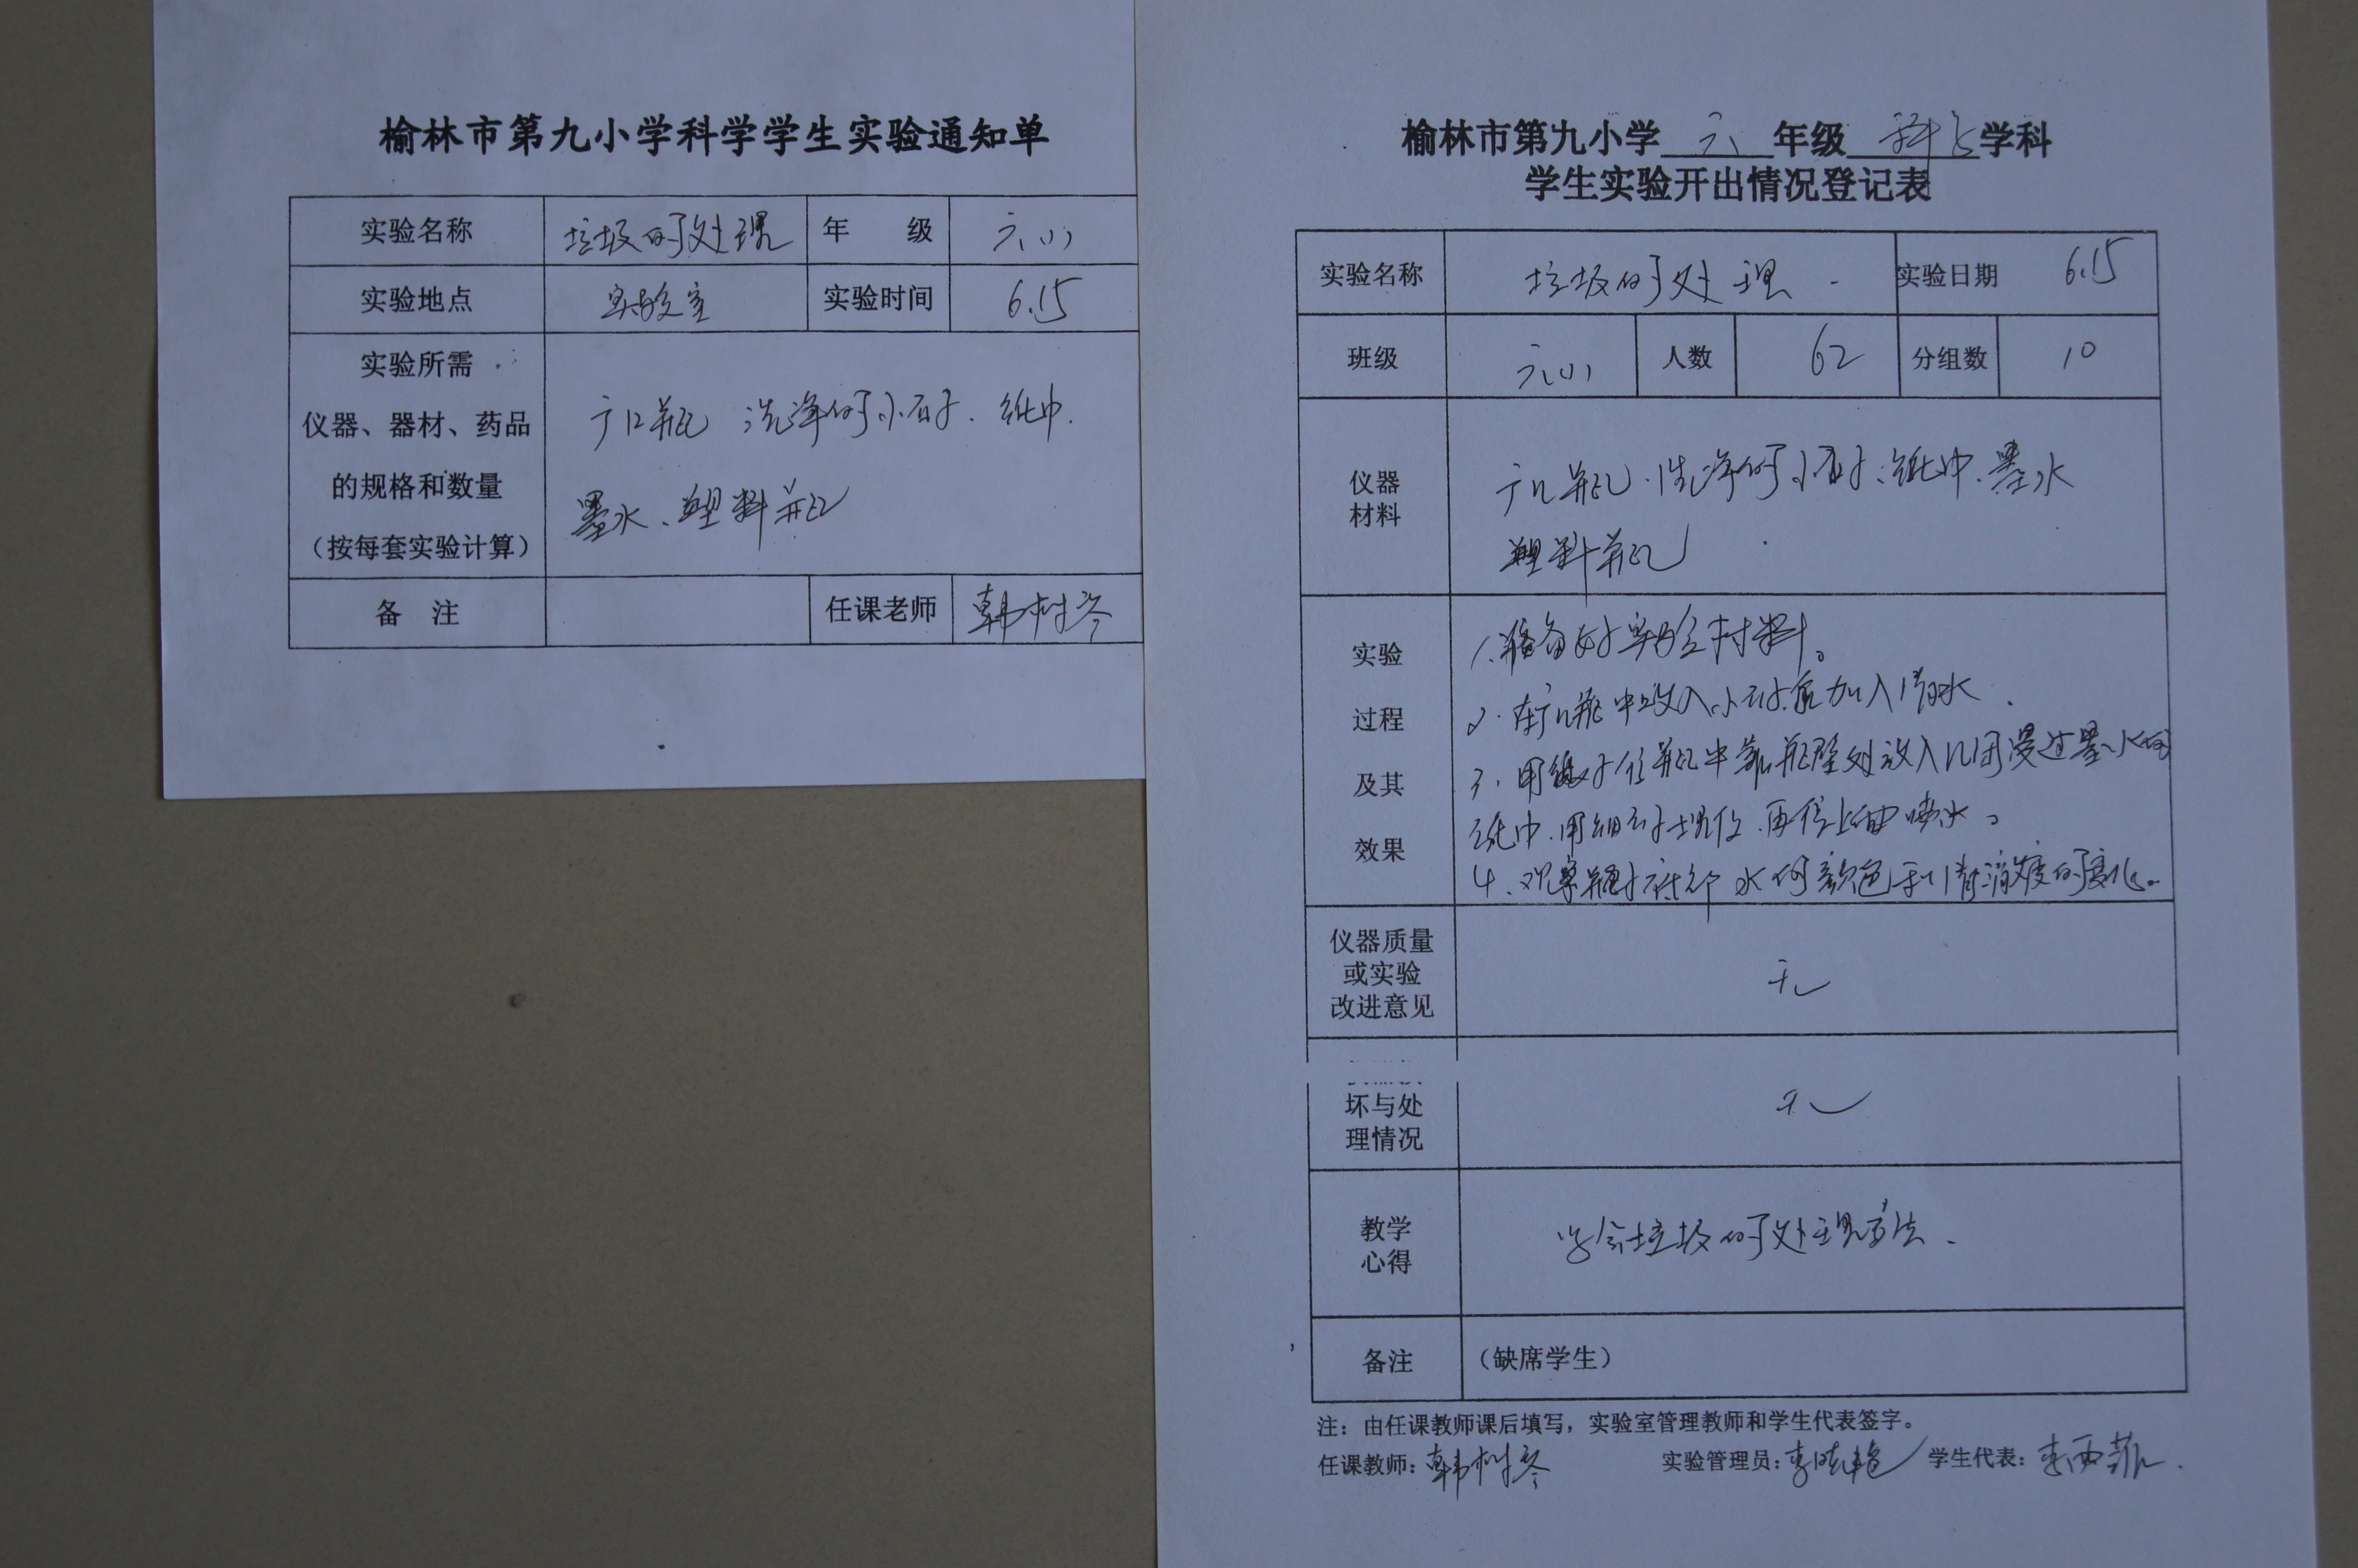 榆林市第九小学科学学生实验通知单
实验名称 垃圾的处理 年 级 六(1)
实验地点 实验室 实验时间 6.15
实验所需
仪器、器材、药品
的规格和数量
(按每套实验计算)
广口瓶 洗净的小石子、纸巾、
墨水、塑料瓶
备 注 任课老师 韩树琴
榆林市第九小学 六 年级 科学 学科
学生实验开出情况登记表
实验名称 垃圾的处理 实验日期 6.15
班级 六(1) 人数 62 分组数 10
仪器
材料
广口瓶、洗净的小石子、纸巾、墨水
塑料瓶
实验
过程
及其
效果
1、准备好实验材料。
2、在广口瓶中放入小石子后加入清水
3、用镊子在瓶中靠瓶壁处放入几团浸过墨水的
纸巾、用细石子埋住、再往上面喷水。
4、观察瓶子底部水的颜色和清澈度的变化。
仪器质量
或实验
改进意见
无
坏与处
理情况
无
教学
心得
学会垃圾的处理方法、
备注 (缺席学生)
注：由任课教师课后填写，实验室管理教师和学生代表签字。
任课教师：韩树琴 实验管理员：李晓艳 学生代表：李西菲